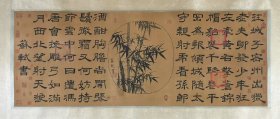 江城子密州出獵
老夫聊發少年狂
左牽黃右擎蒼錦
帽貂裘千騎卷平
岡為報傾城隨太
守親射虎看孫郎
酒酣胸膽尚開張
鬢微霜又何妨持
節雲中何日遣馮
唐會挽雕弓如滿
月西北望射天狼
蘇軾書